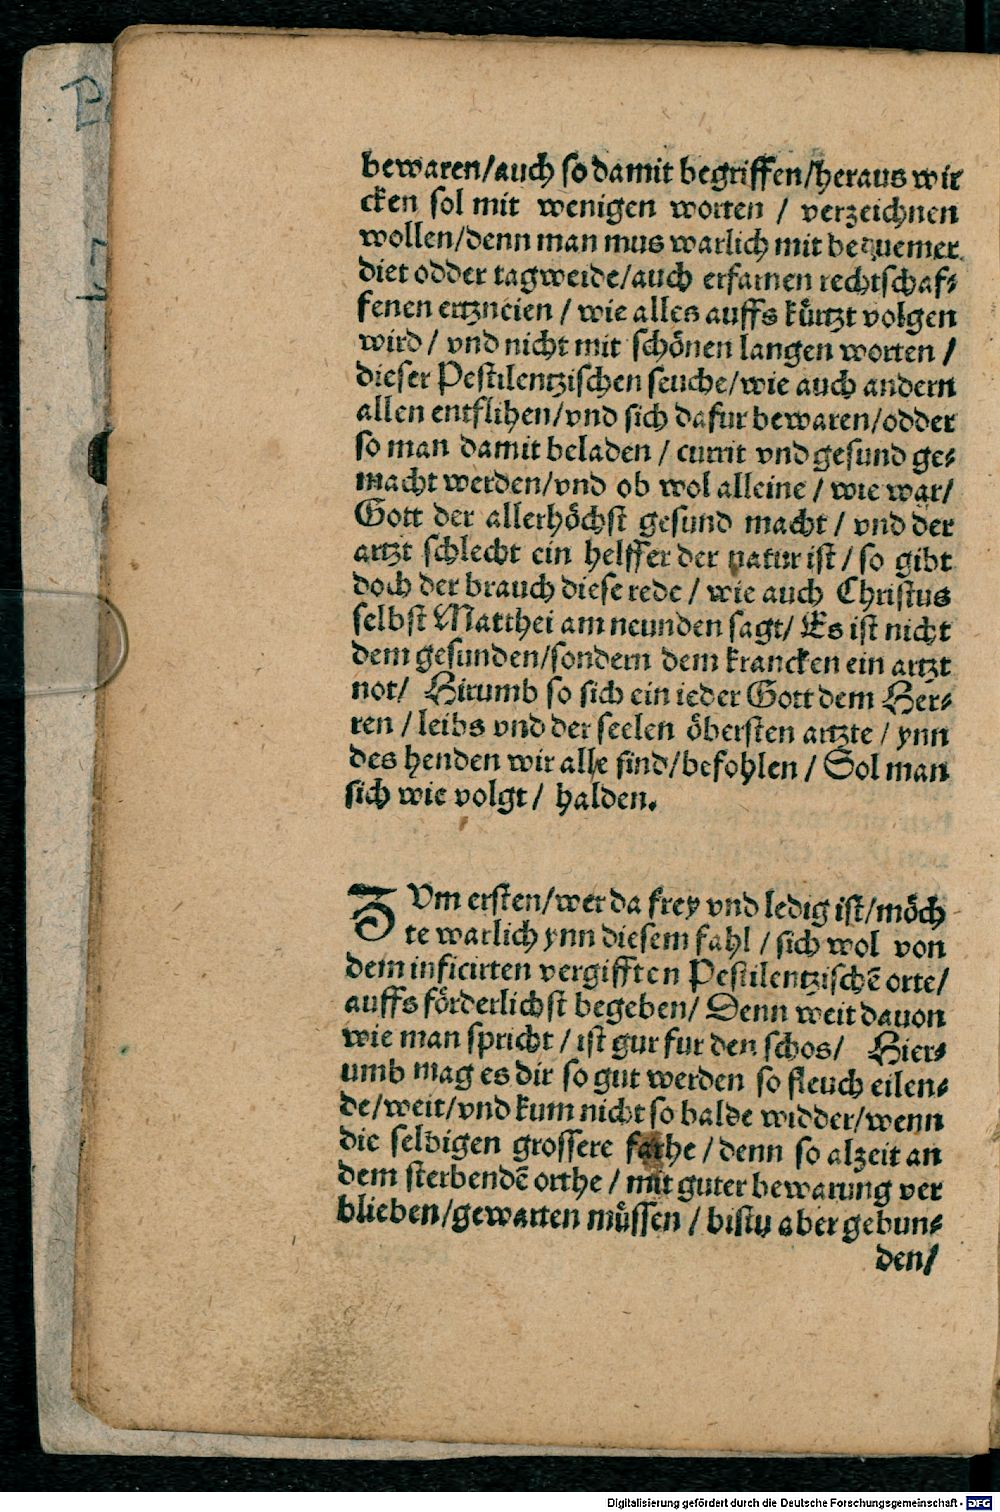 bewaren/auch so damit begriffen/heraus wir
cken sol mit wenigen worten / verzeichnen
wollen/denn man mus warlich mit bequemer
diet odder tagweide/auch erfarnen rechtschaf⸗
fenen ertzneien / wie alles auffs kürtzt volgen
wird / vnd nicht mit schönen langen worten /
dieser Pestilentzischen seuche/wie auch andern
allen entflihen/vnd sich dafur bewaren/odder
so man damit beladen / curirt vnd gesund ge⸗
macht werden/vnd ob wol alleine / wie war/
Gott der allerhöchst gesund macht / vnd der
artzt schlecht ein helffer der natur ist / so gibt
doch der brauch diese rede / wie auch Christus
selbst Matthei am neunden sagt/ Es ist nicht
dem gesunden/sondern dem krancken ein artzt
not/ Hirumb so sich ein ieder Gott dem Her⸗
ren / leibs vnd der seelen öbersten artzte / ynn
des henden wir alle sind/befohlen / Sol man
sich wie volgt / halden.
ZVm ersten/wer da frey vnd ledig ist/möch
te warlich ynn diesem fahl / sich wol von
dem inficirten vergifften Pestilentzischē orte/
auffs förderlichst begeben/ Denn weit dauon
wie man spricht / ist gut fur den schos/ Hier⸗
umb mag es dir so gut werden so fleuch eilen⸗
de/weit/vnd kum nicht so balde widder/wenn
die selbigen grossere farhe / denn so alzeit an
dem sterbendē orthe / mit guter bewarung ver
blieben/gewarten müssen / bistu aber gebun⸗
den/
Digitalisierung gefördert durch die Deutsche Forschungsgemeinschaft - DFG